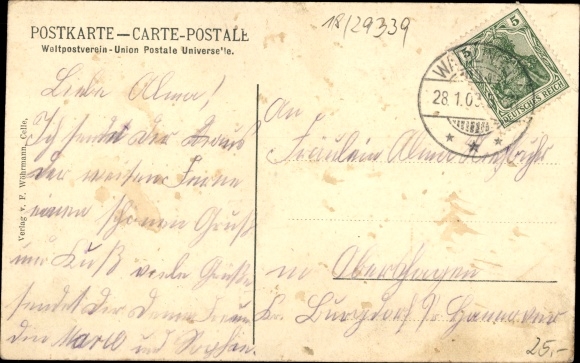 18/29339
POSTKARTE — CARTE-POSTALE
Weltpostverein - Union Postale Universelle.
5
DEUTSCHES REICH
28.1.09
Verlag v. F. Wöhrmann, Celle.
Liebe Alma!
Ich sende dir
der weiten Ferne
einen schönen Gruß
und Kuß viele Grüße
sendet dir deine
Marie und
An
Fräulein Alma
in Obershagen
Kr. Burgdorf Hannover
25,-